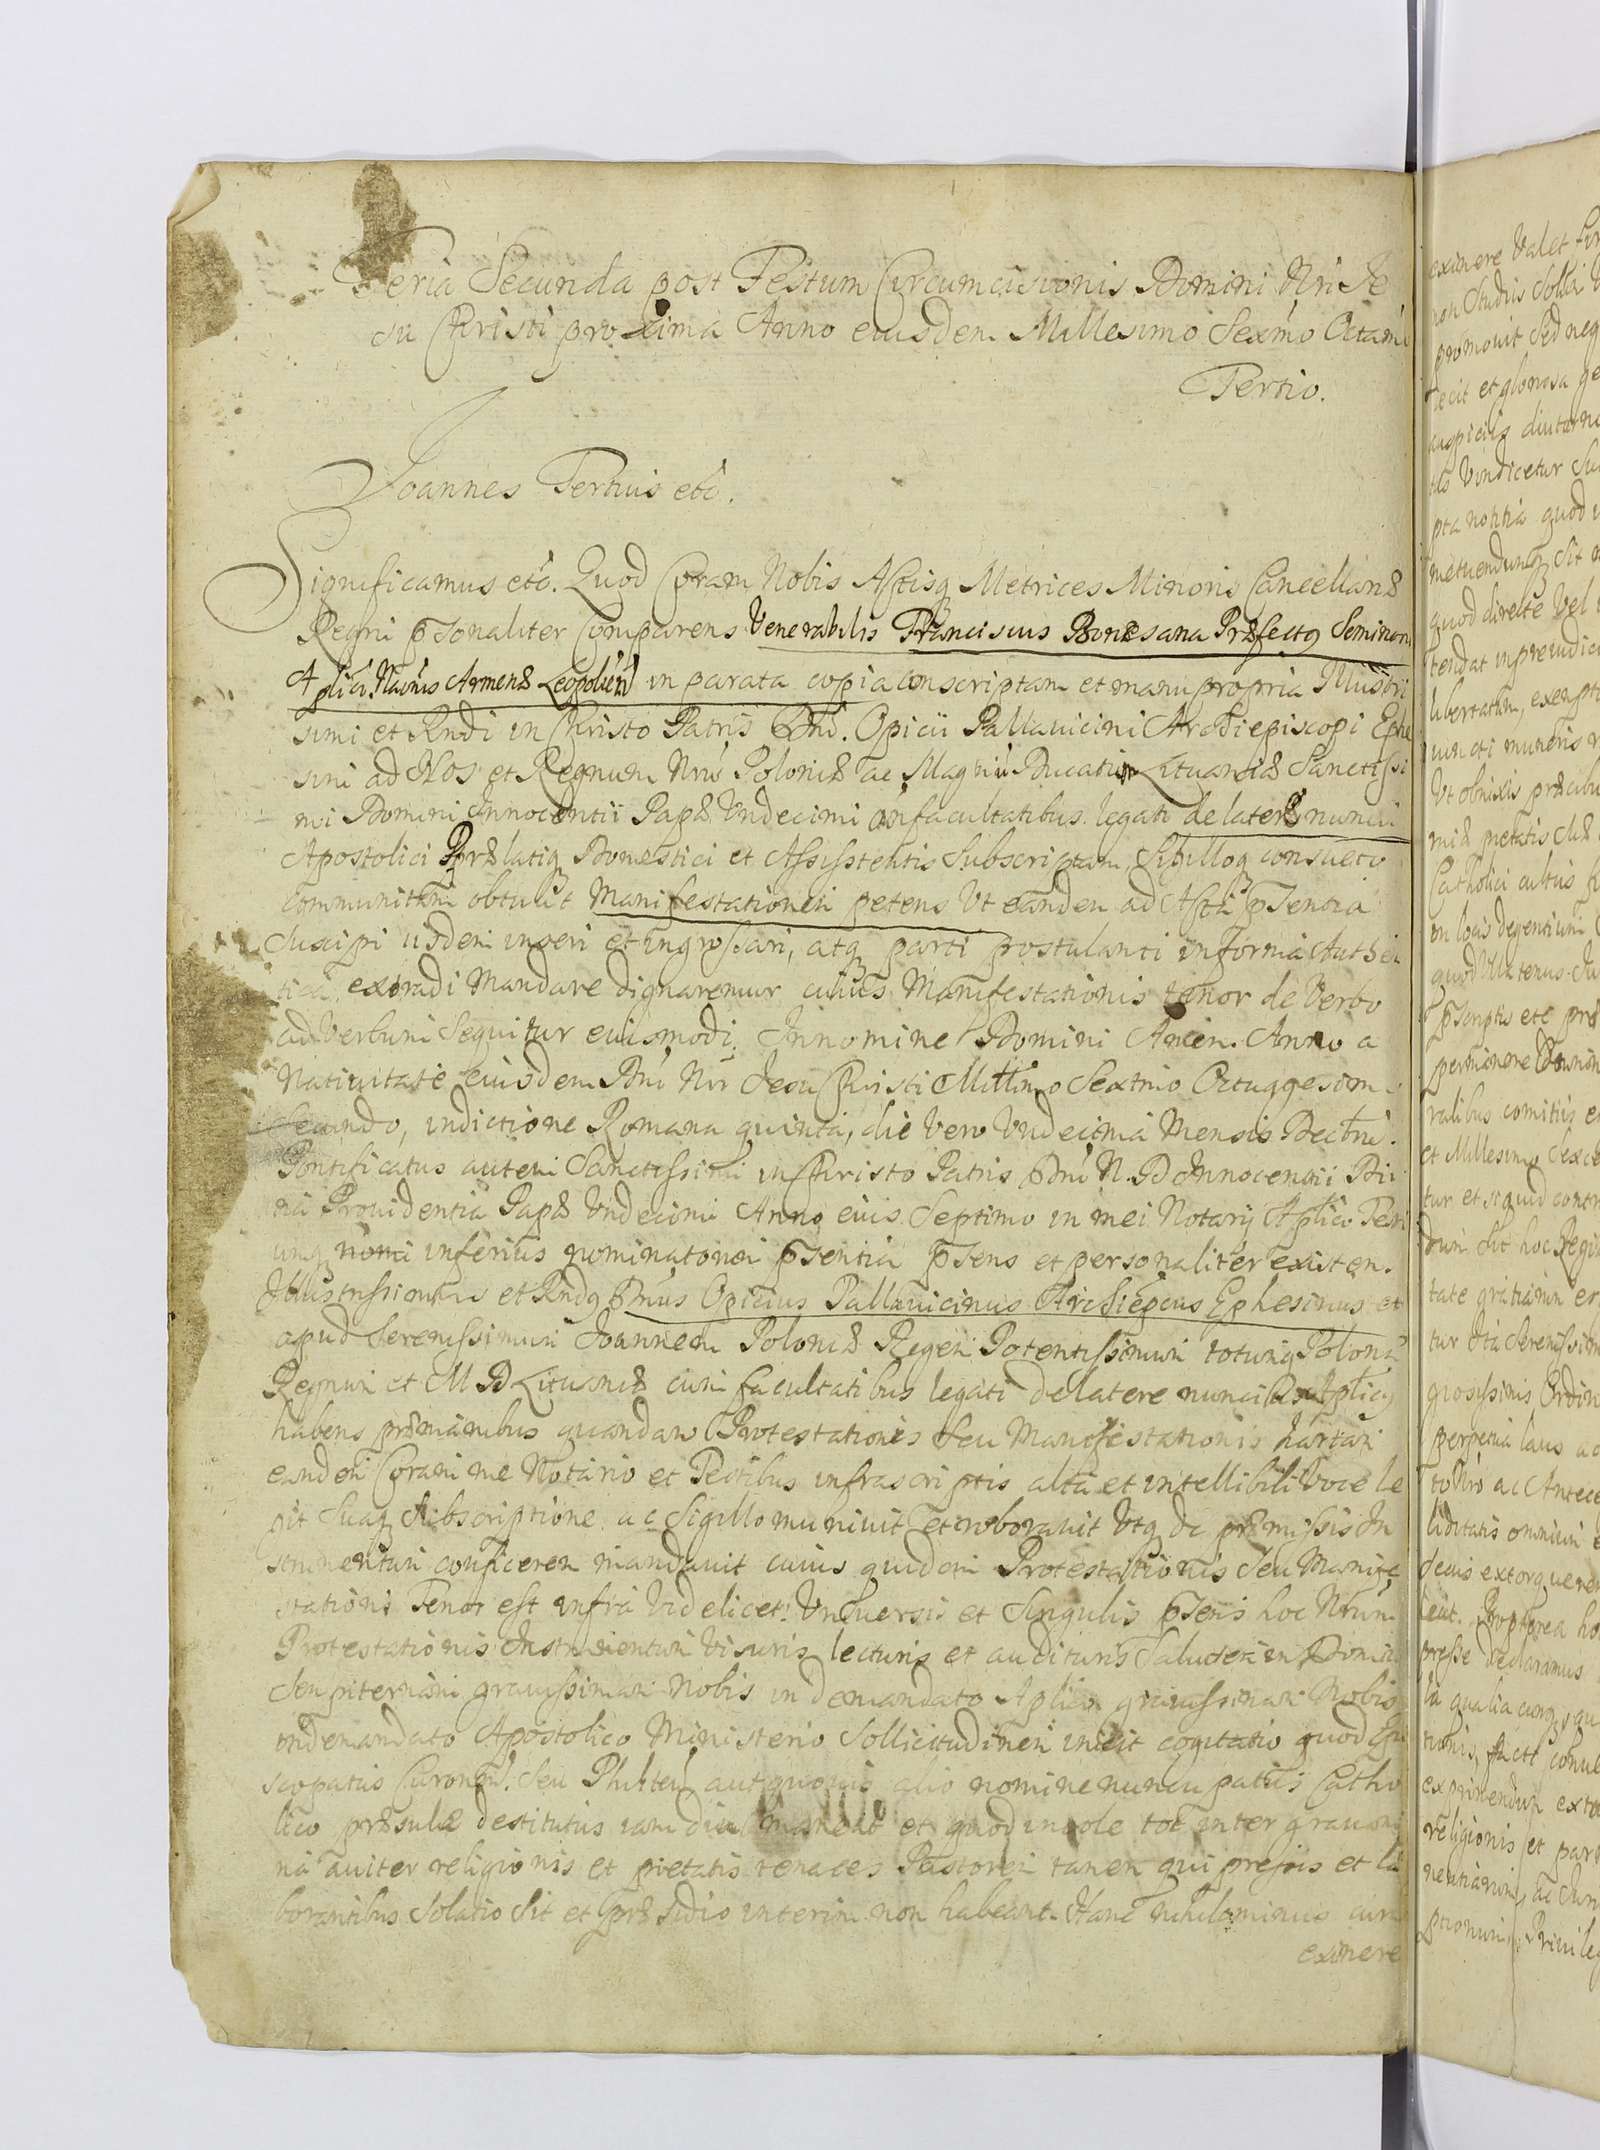 Feria Secunda post Festum Circumcisionis Domini Nri Je
su Christi proxima Anno eiusdem Millesimo Sexmo Octami
Tertio.
Joannes Tertius etc.
Significamus etc. Quod Coram Nobis Actisq Metrices Minoris Cancellariæ
Regni psonaliter Comparens Venerabilis Franciscus Bonesana Præfectq Seminarii
Aplici Naonis Armenæ Leopolien in parata copia conscriptam et manu propria Illustri
simi et Rndi in Christo Patris Dni. Opicii Pallauicini Archiepiscopi Ephe
sini ad Nos et Regnum Nrm Poloniæ ac Magnu Ducatu Lituaniæ Sanctissi
mi Domini Innocentii Papæ Undecimi cum facultatibus legati de latere nuncii
Apostolici Prælatiq Domestici et Assistentis Subscriptam Sigilloq consueto
communitam obtulit Manifestationem petens Vt eandem ad Acta psentia
Suscipi iisdem inseri et ingrossari, atq parti postulanti in forma Authen
tica extradi Mandare dignaremur cuius Manifestationis tenor de Verbo
ad Verbum Sequitur eiusmodi. In nomine Domini Amen. Anno a
Natiuitate eiusdem Dni Nri Jesu Christi Millimo Sextmo Octuagesimo
Secundo, indictione Romana quinta, die Vero Vndecima Mensis Decbri.
Pontificatus autem Sanctissimi in Christo Patris Dni N. D Innocentii Diui
na Prouidentia Papæ Vndecimi Anno eius Septimo in mei Notarij Aplici Testi
umq inferius nominatorum psentia psens et personaliter existen.
Illustrissimus et Rndq Dnus Opicius Pallauicinus Archiepcus Ephesinus et
apud Serenissimum Joannem Poloniæ Regem Potentissimum totumq Poloniæ
Regnum et M D Lituaniæ cum facultatibus legati de latere nuncius Aplicq
habens præ manibus quandam Protestationis Seu Manifestationis hartam
eandem Coram me Notario et Testibus infrascriptis alta et intellibili Voce le
git Suaq Subscriptione ac Sigillo muniuit et roborauit Vtq de præmissis In
strumentum conficerem mandauit cuius quidem Protestationis Seu Manife
stationis Tenor est infra Videlicet! Vniuersis et Singulis psens hoc Nrum
Protestationis Instrumentum Visuris lecturis et audituris Salutem in Domino
Sempiternam grauissimam Nobis in demandato Aplico grauissimam Nobis
indemandato Apostolico Ministerio Sollicitudinem inicit cogitatio quod Epi
scopatus Curonen. Seu Philten aut quouis alio nomine nuncupatus Catho
lico præsule destitutus iam diu maneat et quod incole tot inter grauami
na auiter religionis et pietatis tenaces Pastorem tamen qui pressis et la
borantibus Solatio Sit et præsidio interim non habeant. Hanc nihilominus curam
eximere